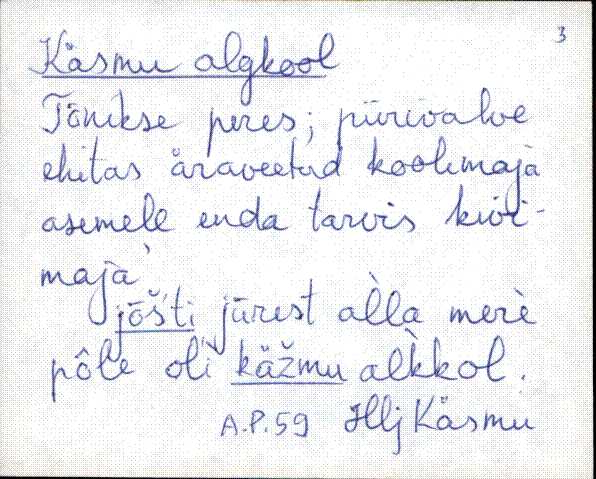 3
Käsmu algkool
Tõnikse peres; piirivalve
ehitas äraveetud koolimaja
asemele enda tarvis kivi-
maja
jöš́ti jūrest al̀la merè
põle oli käžmu al̀kkol.
A.P. 59 Hlj Käsmu